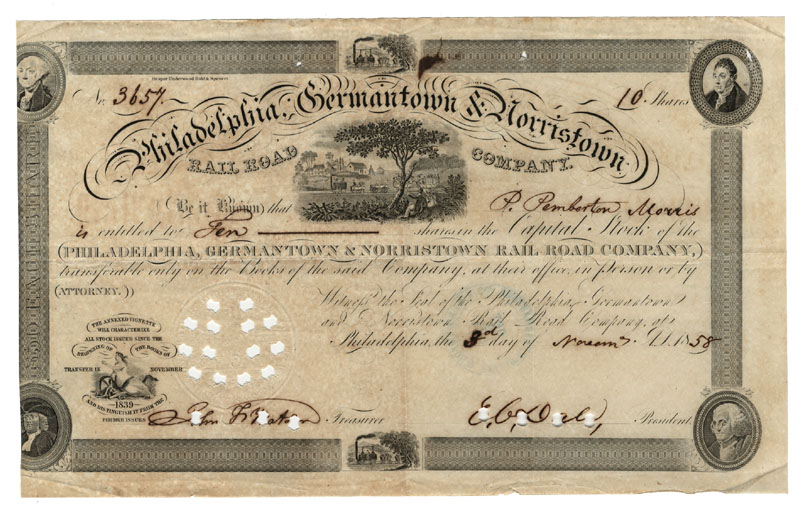 Draper Underwood Bald & Spencer
No. 3657. 10 Shares
Philadelphia, Germantown & Norristown
RAIL ROAD COMPANY.
Be it Known that P. Pemberton Morris
is entitled to Ten shares in the Capital Stock of the
(PHILADELPHIA, GERMANTOWN & NORRISTOWN RAIL ROAD COMPANY,)
transferable only on the Books of the said Company, at their office, in person or by
(ATTORNEY.))
Witness the Seal of the Philadelphia, Germantown
and Norristown Rail Road Company, at
Philadelphia, the 3d day of Novem A.D. 1858
THE ANNEXED VIGNETTE
WILL CHARACTERIZE
ALL STOCK ISSUED SINCE THE
REOPENING OF THE BOOKS OF
TRANSFER IN NOVEMBER
1839
AND DISTINGUISH IT FROM THE
FORMER ISSUES
John F Watson Treasurer
President